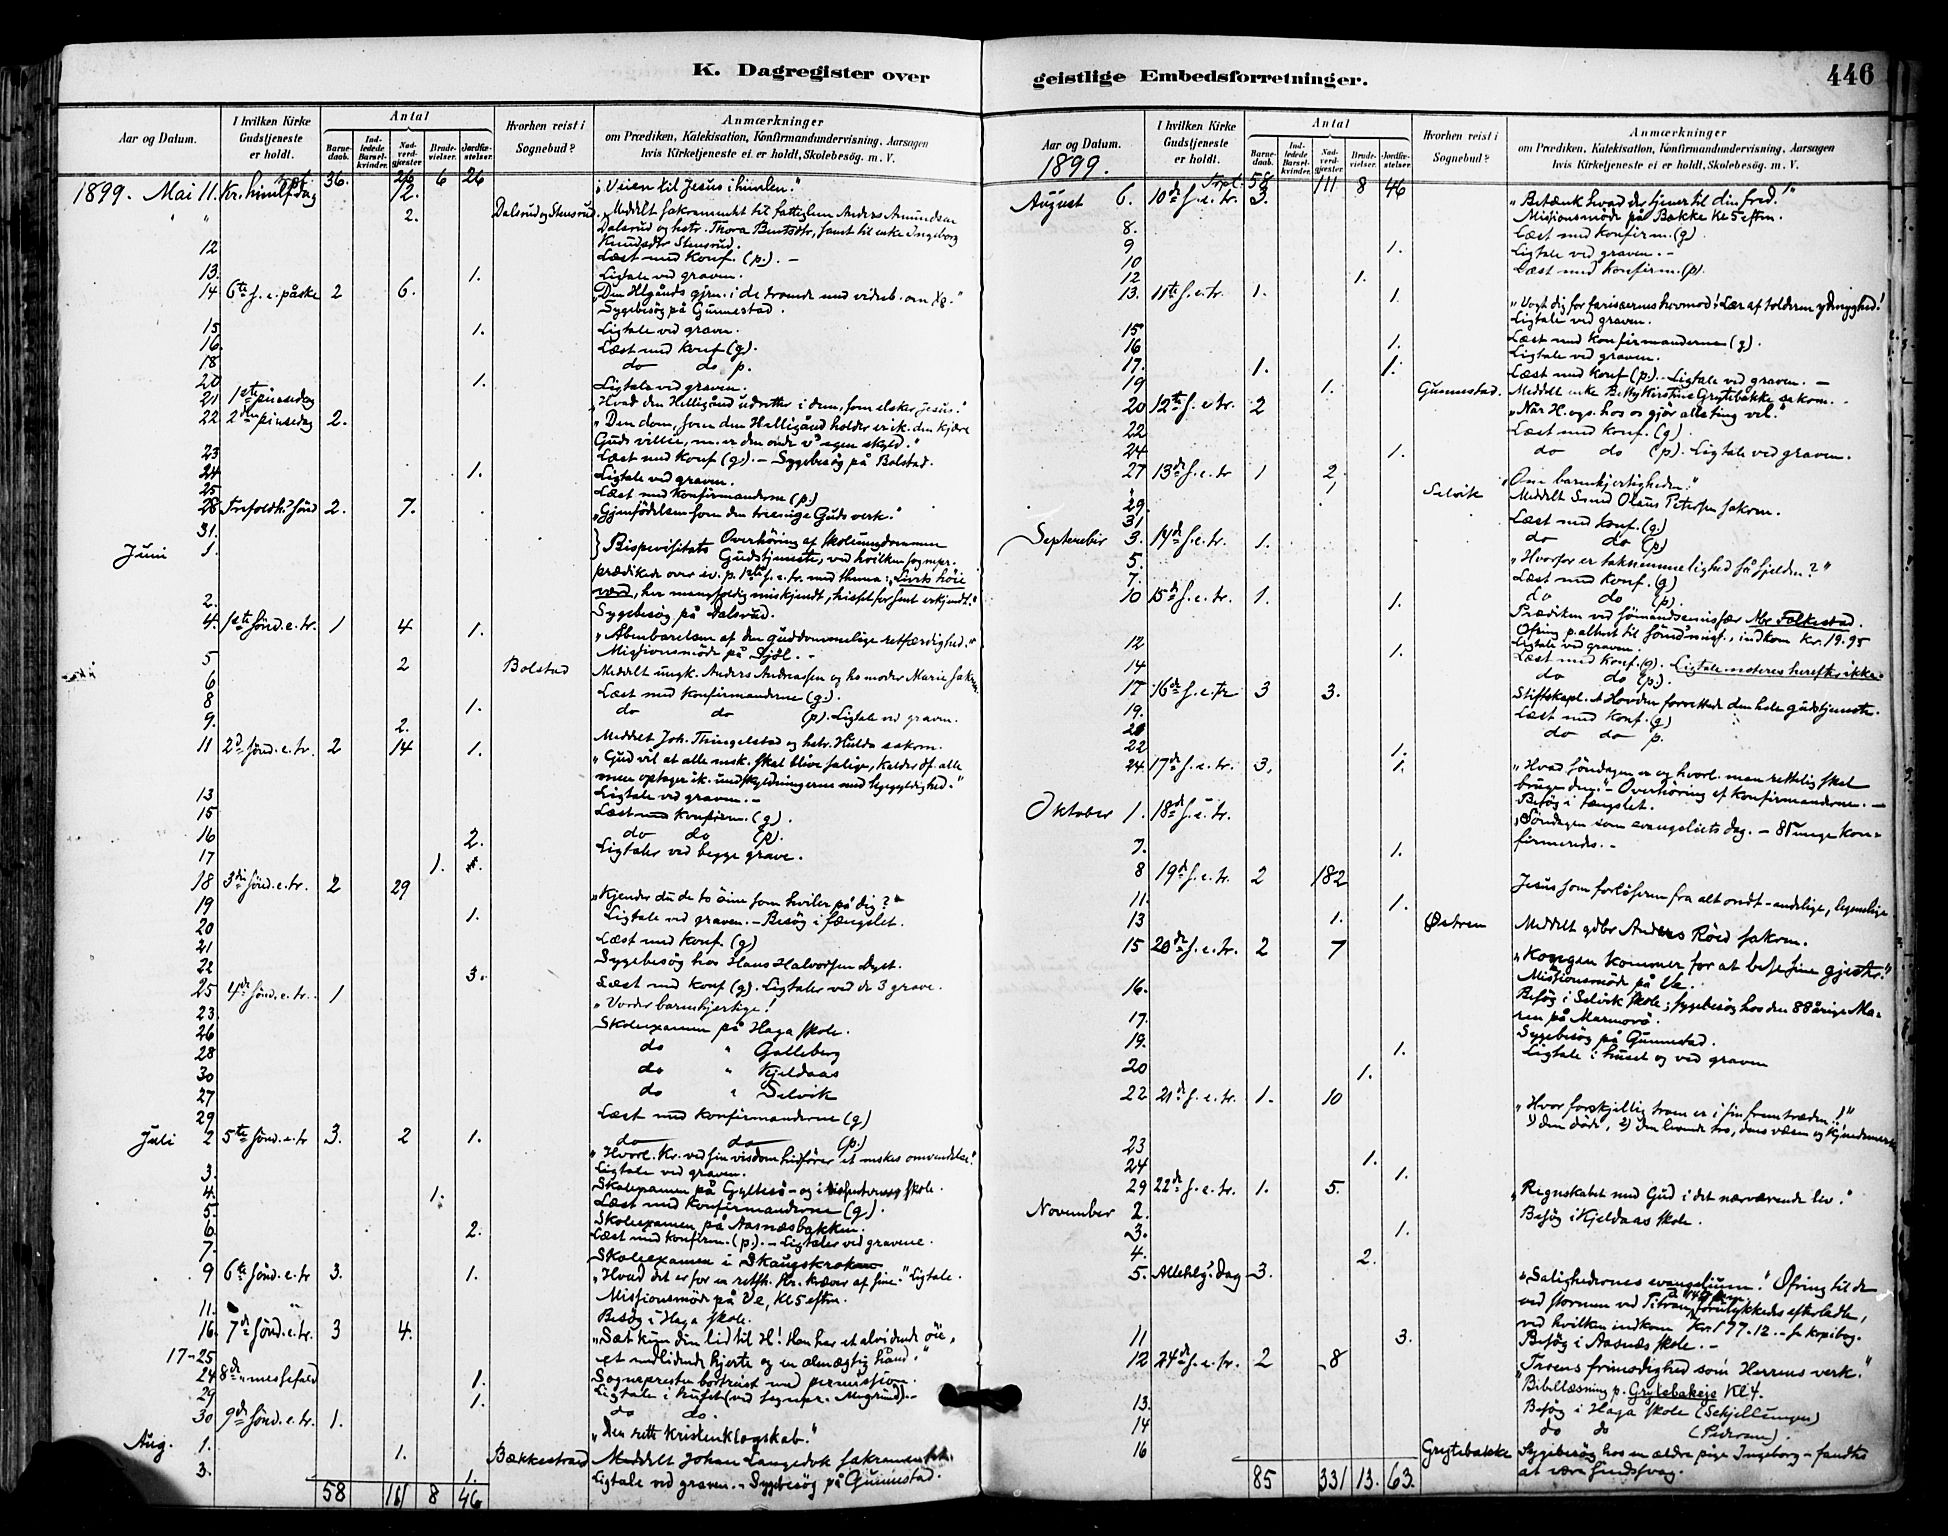 K. Dagregister over
Aar og Datum.
I hvilken Kirke Gudstjeneste er holdt.
Antal
Barnedaab.
Indledede Barselkvinder.
Nadverdgjester
Brudevielser.
Jordfæstelser.
Hvorhen reist i Sognebud?
Anmærkninger
om Prædiken, Katekisation, Konfirmandundervisning, Aarsagen
hvis Kirketjeneste ei er holdt, Skolebesøg. m. V.
36. 26 6 26
1899. Mai 11. Kr. himlf.dag 12. "Veien til Jesus i himlen."
" " 2. Dalsrud og Stensrud. Meddelt sakramentet til fattiglem Anders Amundsen
Dalsrud og hstr. Thora Berntsdtr, samt til enke Ingeborg
Knudsdtr Stensrud.
12 Læst med Konf. (p.). –
13. 1. Ligtale ved graven.
14 6te s. e. påske 2 6.
Sygebesøg på Gunnestad.
15 1. Ligtale ved graven.
16. Læst med Konf (g).
18 do do p.
20 1. Ligtale ved graven.
21 1ste pinsedag "Hvad den Helligånd udretter i dem, som elsker Jesus."
22 2den pinsedag 2. "Den dom, som den Helligånd holder er ik. den kjære
Guds villie, m. er den onde v's egen skyld."
23 Læst med Konf (g). – Sygebesøg på Bolstad.
24 1. Ligtale ved graven.
25 Læst med Konfirmanderne (p.)
28 Trefoldh.s sønd 2. 7. "Gjenfødelsen som den treenige Guds verk."
31. Overhøring af skoleungdommen
Juni 1. Bispevisitats Gudstjeneste, ved hvilken sognepr.
prædikede over ev. p. 1ste s. e. tr. med thema: "Livets høie
værd, her mangfoldig miskjendt, hisset for sent erkjendt."
2. Sygebesøg på Dalsrud.
4. 1ste sønd. e. tr. 1 4 1. "Åbenbarelsen af den guddommelige retfærdighed."
Missionsmøde på
5 2 Bolstad Meddelt ungk. Anders Andreassen og hs moder Marie sakrm.
6 Læst med Konfirmanderne (g).
8 1. do do (p). Ligtale ved graven.
9. 2. Meddelt Joh. Thingelstad og hstr. Hulda sakrm.
11 2d sønd. e. tr. 2 14 1. "Gud vil at alle msk. skal blive salige, kalder df. alle
men optager ik. undskyldningerne med ligegyldighed."
Ligtale ved graven. –
13 Læst med Konfirm. (g).
15 do do (p).
16 2. Ligtaler ved begge grave.
17 1.
18 3die sønd. e. tr. 2 29 "Kjender du de to øine som hviler på dig?"
19 1. Ligtale ved graven. – Besøg i fængslet.
20 Læst med Konf. (g)
21 Sygebesøg hos Hans Halvorsen Dyst.
22 3. Læst med Konf (g). Ligtaler ved de 3 grave.
25 4de sønd. e. tr. 1 "Vorder barmhjertige!
23. Skoleexamen på Haga skole.
26 do " Galleberg
28 do " Kjeldaas
30 do " Selvik
27 Læst med Konfirmanderne (g)
29 do do (p.)
Juli 2 5te sønd. e. tr 3. 2 1. "Hvorl. Kr. ved sin visdom hidfører et mskes omvendelse."
Ligtale ved graven.
3. Skolexamen på Gyltesø – og i skole.
4. 1. Læst med Konfirmanderne (g).
5. Skoleexamen på Aasnæsbakken.
6. 2. Læst med Konfirm. (p.). – Ligtaler ved gravene.
7. Skoleexamen i Skaugskroken
9 6te sønd. e. tr 3. 1. "Hvad det er for en retfh. Kr. kræver af sine." Ligtale.
Missionsmøde på Ve, Kl 5 eftm.
11. Besøg i Haga skole.
16. 7de sønd. e. tr. 3 4. "Sæt kun din lid til H! Han har et alvidende øie,
et medlidende hjerte og en almægtig hånd."
17-25 Sognepresten bortreist med permission.
24 8de messefald 1. Ligtale i huset (ved sognepr. ).–
29 1. do do.
30 9de sønd. e. tr. 1. "Den rette kristenklogskab."
Aug. 1. 1. Bækkestrand Meddelt Johan Langedok sakramentet.
3. 1. Ligtale ved graven. – Sygebesøg på Gunnestad.
58 111 8 46
geistlige Embedsforretninger. 446
Aar og Datum.
1899.
I hvilken Kirke Gudstjeneste er holdt.
Antal
Barnedaab.
Indledede Barselkvinder.
Nadverdgjester.
Brudevielser.
Jordfæstelser.
Hvorhen reist i Sognebud?
Anmærkninger
om Prædiken, Katekisation, Konfirmandundervisning, Aarsagen
hvis Kirketjeneste ei er holdt, Skolebesøg. m. V.
Trpt. 58 111 8 46
August 6. 10de s. e. tr. 3. "Betænk hvad der tjener til din fred!"
Missionsmøde på Bække Kl 5 eftm.
8. Læst med Konfirm. (g)
9 1. Ligtale ved graven. –
10 Læst med Konfirm. (p).
12 1.
13. 11te s. e. tr. 1. 1. "Vogt dig for farisæernes hovmod! Lær af tolderen ydmyghed!
Ligtale ved graven.
15 Læst med Konfirmanderne (g).
16 1. Ligtale ved graven.
17. 1. 1. Læst med Konf (p.). – Ligtale ved graven. –
19 1. Gunnestad. Meddelt enke Betty Kirstine Grytebakke sakrm.
20 12te s. e. tr. 2 "Når H. ops. hos os gjør alle ting vel."
22 Læst med Konf. (g)
24 1. do do (p). Ligtale ved graven.
27 13de s. e. tr 1 2. "Om barmhjertigheden."
" 1 Selvik Meddelt Smed Olaus Petersen sakrm.
29. Læst med Konf. (g.)
31 do do (p)
September 3. 14de s. e. tr. 1. "Hvorfor er taknemmelighed så sjelden?"
5. Læst med Konf. (g)
7. do do (p).
10 15de s. e. tr. 1. 1. Prædiken ved sømandsemissær Mr Falkestad.
Ofring p. alteret til sømdsmis., indkom kr. 19.95
Ligtale ved graven.
12 1. Læst med Konf. (g). Ligtale noteres herefter ikke.
14 do do (p.).
17 16de s. e. tr 3 3. Stiftskapl. A Hovden forrettede den hele gudstjeneste.
19. Læst med Konf. (g)
21 do do p.
22 1.
24 17de s. e. tr. 3. 1. "Hvad søndagen er og hvorl. man rettelig skal
bruge den." – Overhøring af Konfirmanderne. –
Besøg i fængslet.
Oktober 1. 18de s. e. tr. "Søndagen som evangeliets dag. – 85 unge kon-
firmeredes. –
7. 1.
8 19de s. e. tr. 2 182 Jesus som forløseren fra alt ondt – andelige, legemlige
11. 1.
13 1. Østren Meddelt gdbr Anders Røed sakrm.
15 20de s. e. tr. 2 7 "Kongen kommer for at bese sine gjester."
Missionsmøde på Ve.
16. Besøg i Selvik skole; sygebesøg hos den 88 årige Ma-
ren på Marmorø.
17. Sygebesøg på Gunnestad.
19. 1. Ligtale i huset og ved graven
20 1.
22 21de s. e. tr. 1. 10 "Hvor forskjellig troen er i sin fremtræden!"
1) den døde, 2) den levende tro, dens væsen og kjendemerke
23
24 1.
29 22de s. e. tr. 1. 5. 1. "Regnskabet med Gud i det nærværende liv."
November 2. Besøg i Kjeldaas skole.
3. 1.
4. 2.
5. Allehlg.s dag 3. "Salighedernes evangelium." Ofring til de
ved stormen ved Titran forulykkedes efterladte,
ved hvilken indkom Kr. 177.12. – se kopibog.
11 3. Besøg i Aasnæs skole. –
12 24de s. e. tr. 2 8 "Troens frimodighed som Herrens verk."
"Bibellæsning p. Grytebakeje Kl 4.
13. Besøg i Haga skole (Schjellungen)
14 do do (Pedersen).
16 Grytebakke Sygebesøg hos en ældre pige Ingeborg – fandtes
at være sindssvag.
85 331 13. 63.